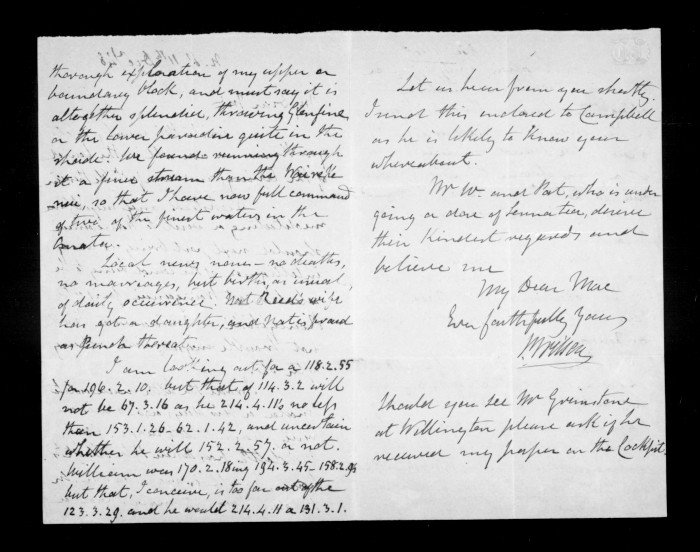 thorough exploration of my upper or
boundary block, and must say it is
altogether splendid, throwing Glenfine
or the lower paradise quite in the
shade. We found running through
it a finer stream than the
so that I have now full command
of two of the finest waters in the

Local news none – no deaths,
no marriages, but births, as usual,
of daily occurrence. Nat Reed's wife
has got a daughter, and Nat is proud
as
I am looking out for a 118.2.55
for 296.2.10. but that of 114.3.2 will
not be 67.3.16 as he 214.4.11 is no less
than 153.1.26-62.1.42, and uncertain
whether he will 152.2.57, or not.
William was 170.2.18ing 194.3.45-158.2.93
but that, I conceive, is too far out of the
123.3.29. and he would 214.4.11 a 131.3.1.
Let us hear from you shortly.
I must this enclosed to Campbell
as he is likely to know your
whereabout.
Mr W. and Pat, who is under
going a dose of Senna tea, desire
their kindest regards and
believe me
My Dear Mac
Ever faithfully Yours

Should you see Mr Grimstone
at Wellington please ask if he
received my paper on the Cockpit.